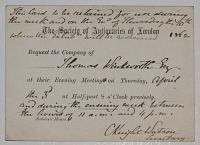 This Card to be retained for use during
the week and on the Eve.g of Thursday the 10th
when the ... will be returned 1862
The Society of Antiquaries of London
Request the Company of
Thomas Winkworth Esq
at their Evening Meeting on Thursday, April
the 3rd at Half-past 8 o'Clock precisely.
and during the ensuing week between
the hours of 11 a.m. and 4 p.m.
Somerset House.
C Knight Watson
Secretary.